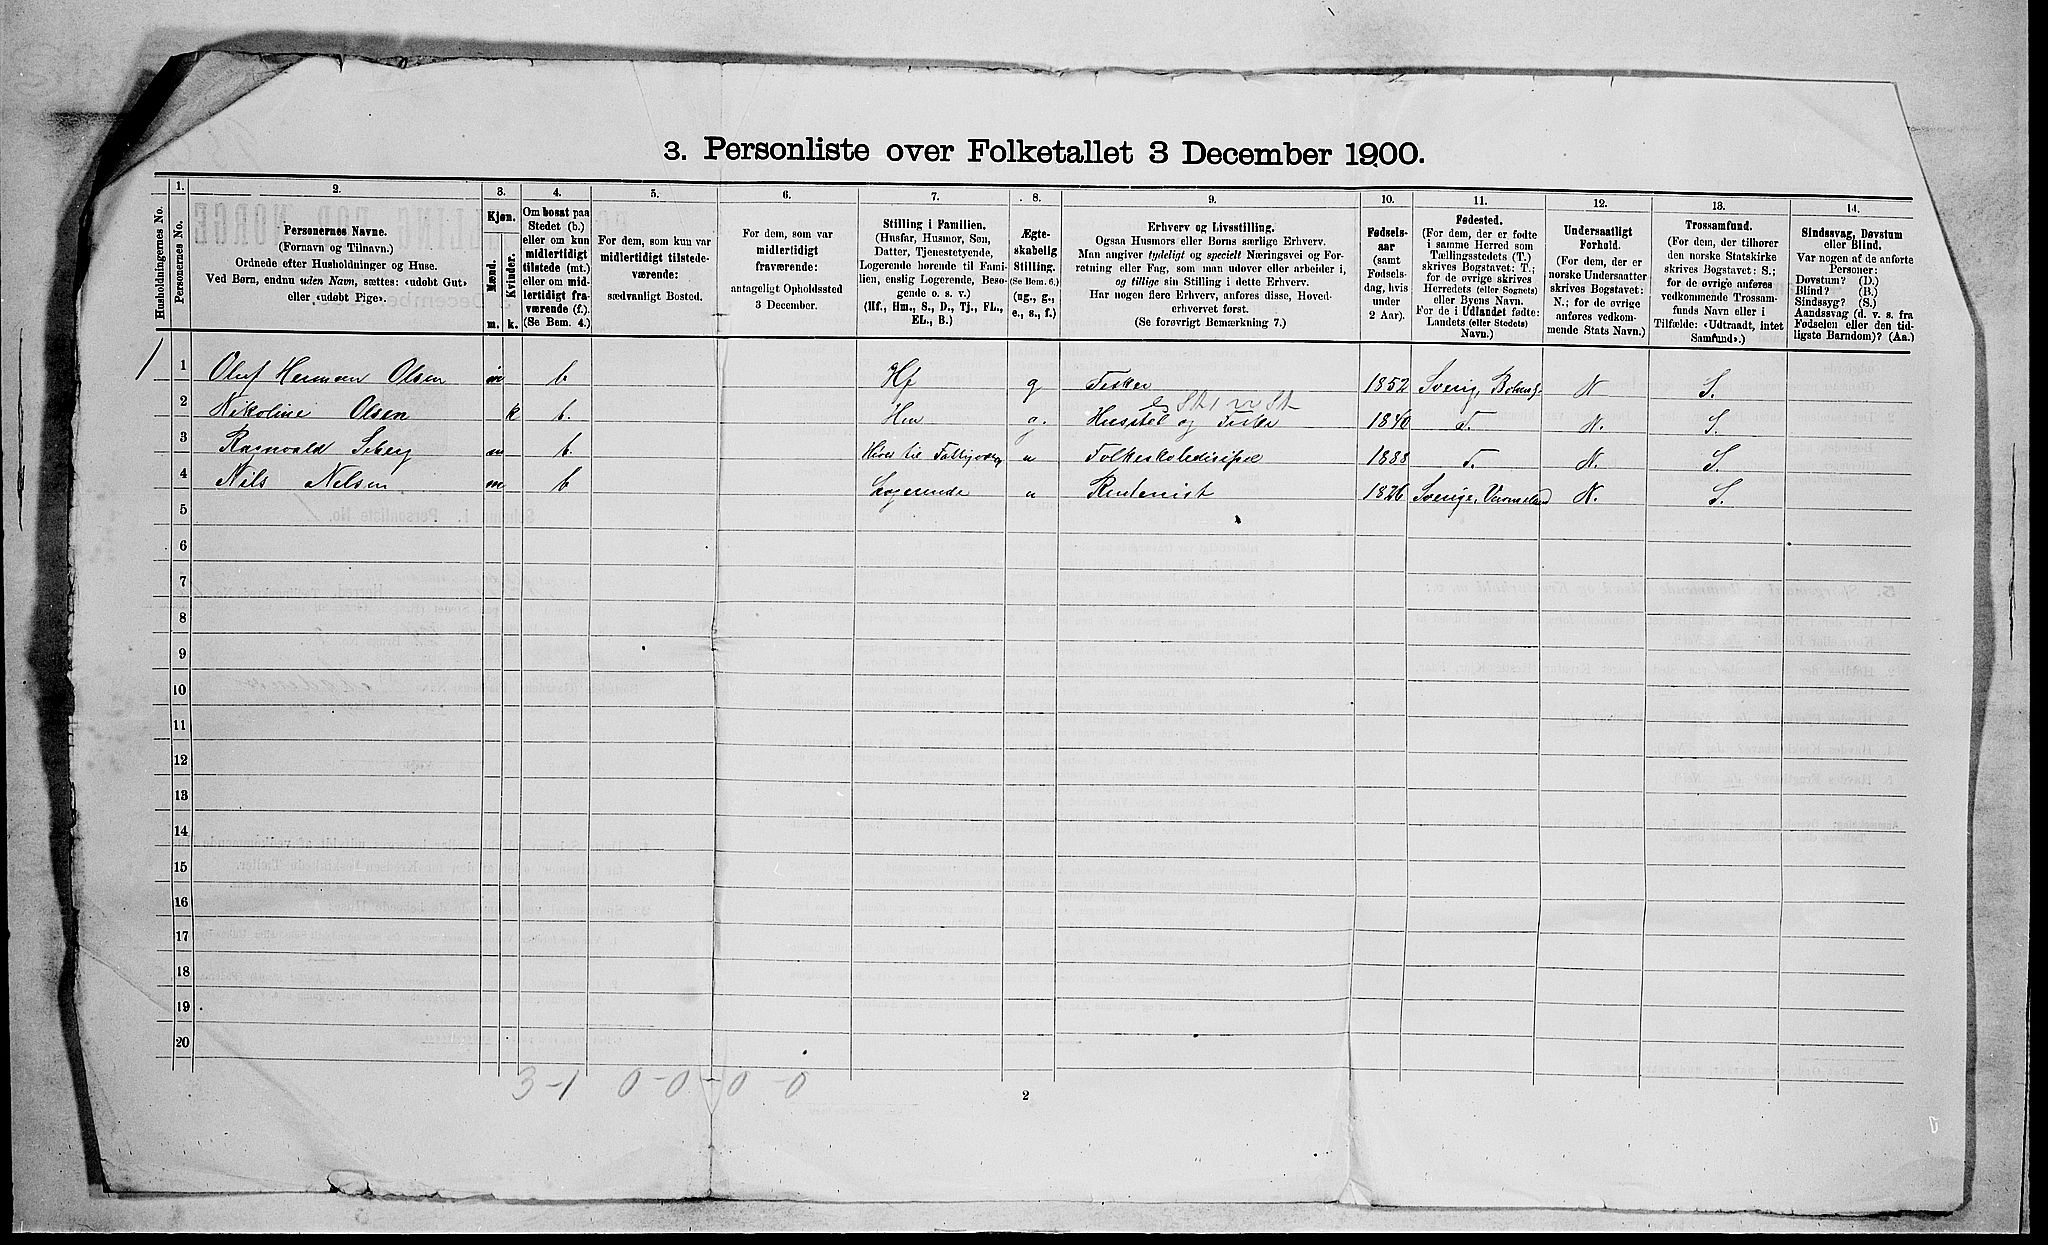 3. Personliste over Folketallet 3 December 1900.
1. 2. 3. 4. 5. 6. 7. 8. 9. 10. 11. 12. 13. 14.
Husholdningernes No.
Personernes No.
Personernes Navne.
(Fornavn og Tilnavn.)
Ordnede efter Husholdninger og Huse.
Ved Børn, endnu uden Navn, sættes: «udøbt Gut»
eller «udøbt Pige».
Kjøn.
Mænd.
Kvinder.
m. k.
Om bosat paa
Stedet (b.)
eller om kun
midlertidigt
tilstede (mt.)
eller om mid-
lertidigt fra-
værende (f.).
(Se Bem. 4.)
For dem, som kun var
midlertidigt tilstede-
værende:
sædvanligt Bosted.
For dem, som var
midlertidigt
fraværende:
antageligt Opholdssted
3 December.
Stilling i Familien.
(Husfar, Husmor, Søn,
Datter, Tjenestetyende,
Logerende hørende til Fami-
lien, enslig Logerende, Besø-
gende o. s. v.)
(Hf., Hm., S., D., Tj., FL.,
EL., B.)
Ægte-
skabelig
Stilling.
(Se Bem. 6.)
(ug., g.,
e., s., f.)
Erhverv og Livsstilling.
Ogsaa Husmors eller Børns særlige Erhverv.
Man angiver tydeligt og specielt Næringsvei og For-
retning eller Fag, som man udøver eller arbeider i,
og tillige sin Stilling i dette Erhverv.
Har nogen flere Erhverv, anføres disse, Hoved-
erhvervet først.
(Se forøvrigt Bemærkning 7.)
Fødsels-
aar
(samt
Fødsels-
dag, hvis
under
2 Aar).
Fødested.
(For dem, der er fødte
i samme Herred som
Tællingsstedets (T.)
skrives Bogstavet: T.;
for de øvrige skrives
Herredets (eller Sognets)
eller Byens Navn.
For de i Udlandet fødte:
Landets (eller Stedets)
Navn.)
Undersaatligt
Forhold.
(For dem, der er
norske Undersaatter
skrives Bogstavet:
N.; for de øvrige
anføres vedkom-
mende Stats Navn.)
Trossamfund.
(For dem, der tilhører
den norske Statskirke
skrives Bogstavet: S.;
for de øvrige anføres
vedkommende Trossam-
funds Navn eller i
Tilfælde: «Udtraadt, intet
Samfund».)
Sindssvag, Døvstum
eller Blind.
Var nogen af de anførte
Personer:
Døvstum? (D.)
Blind? (B.)
Sindssyg? (S.)
Aandssvag (d. v. s. fra
Fødselen eller den tid-
ligste Barndom)? (Aa.)
1 1 Oluf Herman Olsen m b Hf g Fisker 1852 Sverig, N S.
2 Nikoline Olsen k b. Hm g. Husstel og Fiske 1840 T. N. S.
3 Ragnvald m b. til u Folkeskoledisipel 1888 T. N. S.
4 Nils Nelsen m b Logerende u Rentenist 1826 Sverige, Vermeland N. S.
5
6
7
8
9
10
11
12
13
14
15
16
17
18
19
20
3-1 0-0-0-0
2